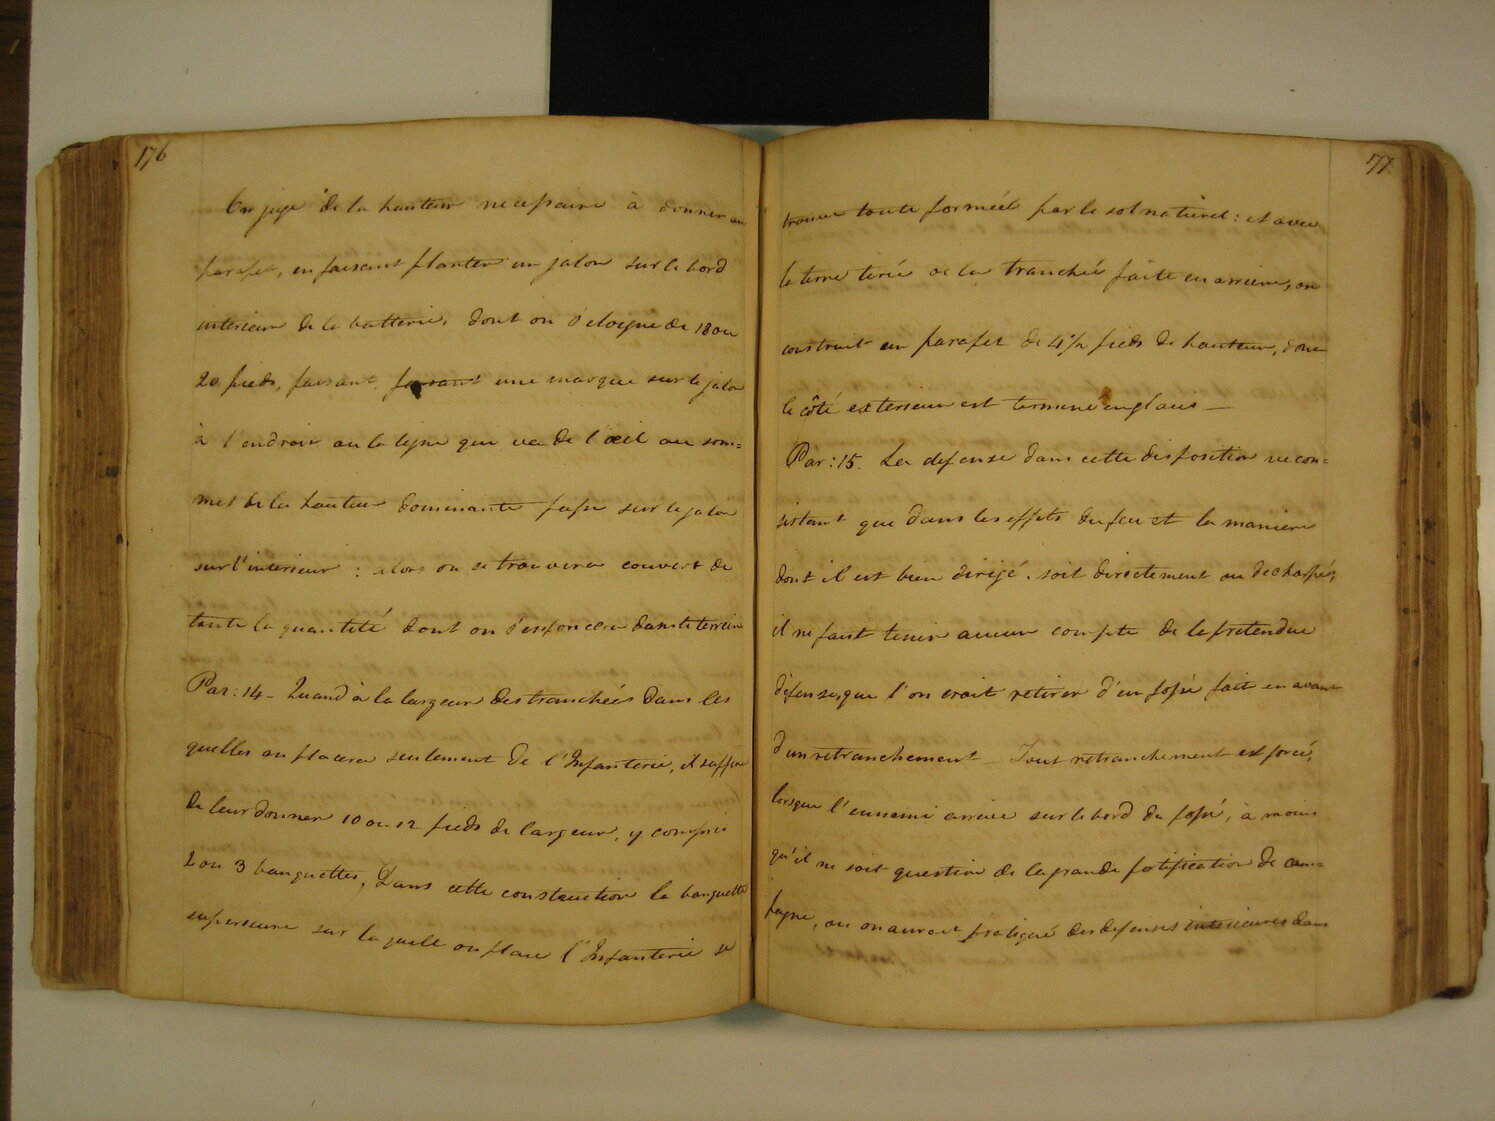 176
On juge de la hauteur necessaire à donner au
parapet, en faisant planter un jalon sur le bord
interieur de la batterie, dont on s'eloigne de 18 ou
20 pieds, faisant, faisant une marque sur le jalon
à l'endroit ou la ligne qui va de l'œil au som=
met de la hauteur dominante passe sur le jalon
sur l'interieur : alors on se trouvera couvert de
toute la quantité dont on s'enfoncera dans le terrein
Par: 14 - Quand à la largeur des tranchées dans les
quelles on placera seulement de l'Infanterie, il suffira
de leur donner 10 ou 12 pieds de largeur, y compris
2 ou 3 banquettes, Dans cette construction la banquette
superieure sur laquelle on place l'Infanterie se
177
trouve toute formée par le sol naturel : et avec
la terre tirée de la tranchée faite en arriere, on
construit un parapet de 4½ pieds de hauteur, dont
le côté exterieur est terminé en glacis —
Par: 15. La defense dans cette disposition ne con=
sistant que dans les effets du feu et la maniere
dont il est bien dirigé. soit directement ou d'echarpé;
il ne faut tenir aucun compte de la pretendue
défense, que l'on croit retirer d'un fossé fait en avant
d'un retranchement - Tout retranchement est forcé,
lorsque l'ennemi arrive sur le bord du fossé, à moins
qu'il ne soit question de la grande fortification de cam=
pagne, ou on auroit pratiqué des defenses interieures dans